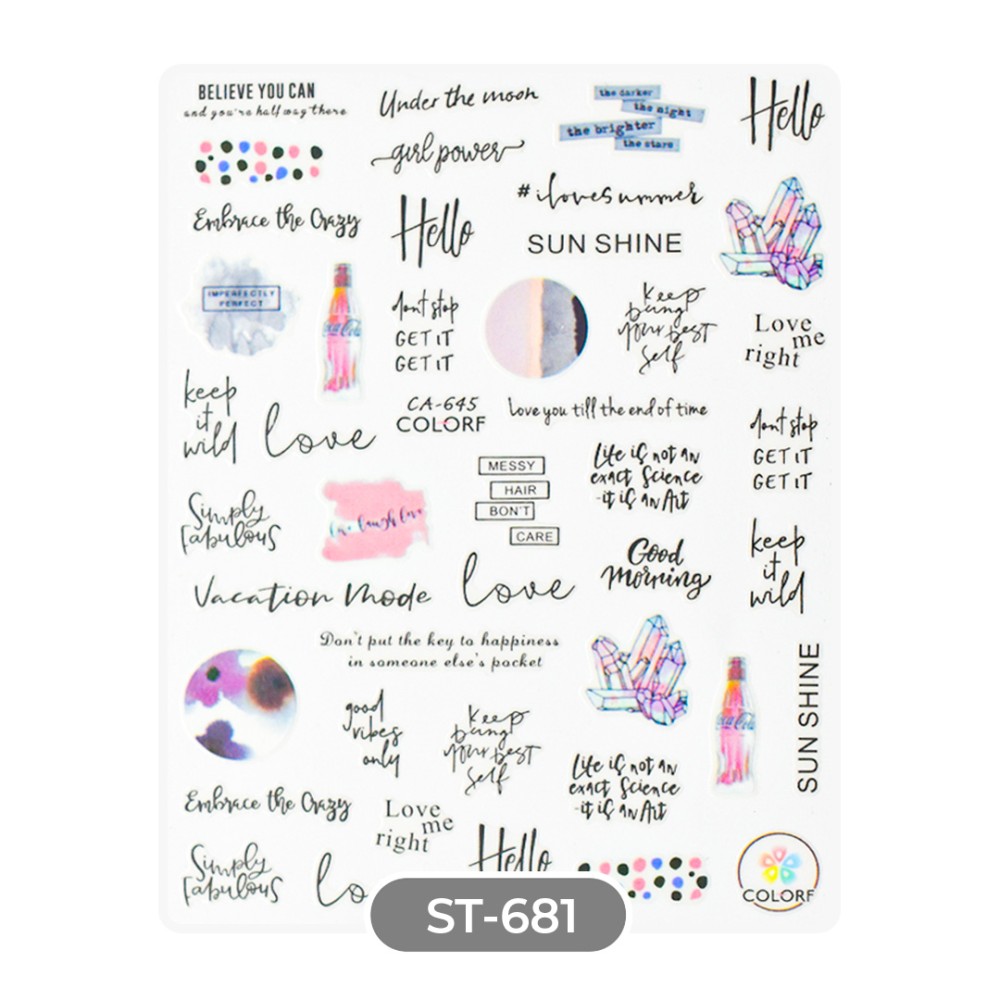 BELIEVE YOU CAN
and you're half way there
Under the moon
girl power
the darker
the night
the brighter
the stars
Hello
Embrace the Crazy
Hello
# ilovesummer
SUN SHINE
IMPERFECTLY
PERFECT
Coca-Cola
dont stop
GET IT
GET IT
keep
bring
your best
self
Love
me
right
keep
it
wild
love
CA-645
COLORF
love you till the end of time
dont stop
GET IT
GET IT
Life is not an
exact Science
-it is an Art
MESSY
HAIR
BON'T
CARE
Simply
fabulous
live laugh love
Good
morning
keep
it
wild
Vacation mode
love
Don't put the key to happiness
in someone else's pocket
SUN SHINE
good
vibes
only
keep
bring
your best
self
Coca-Cola
Life is not an
exact Science
-it is an Art
Embrace the Crazy
Love
me
right
Hello
Simply
fabulous
lo
COLORF
ST-681